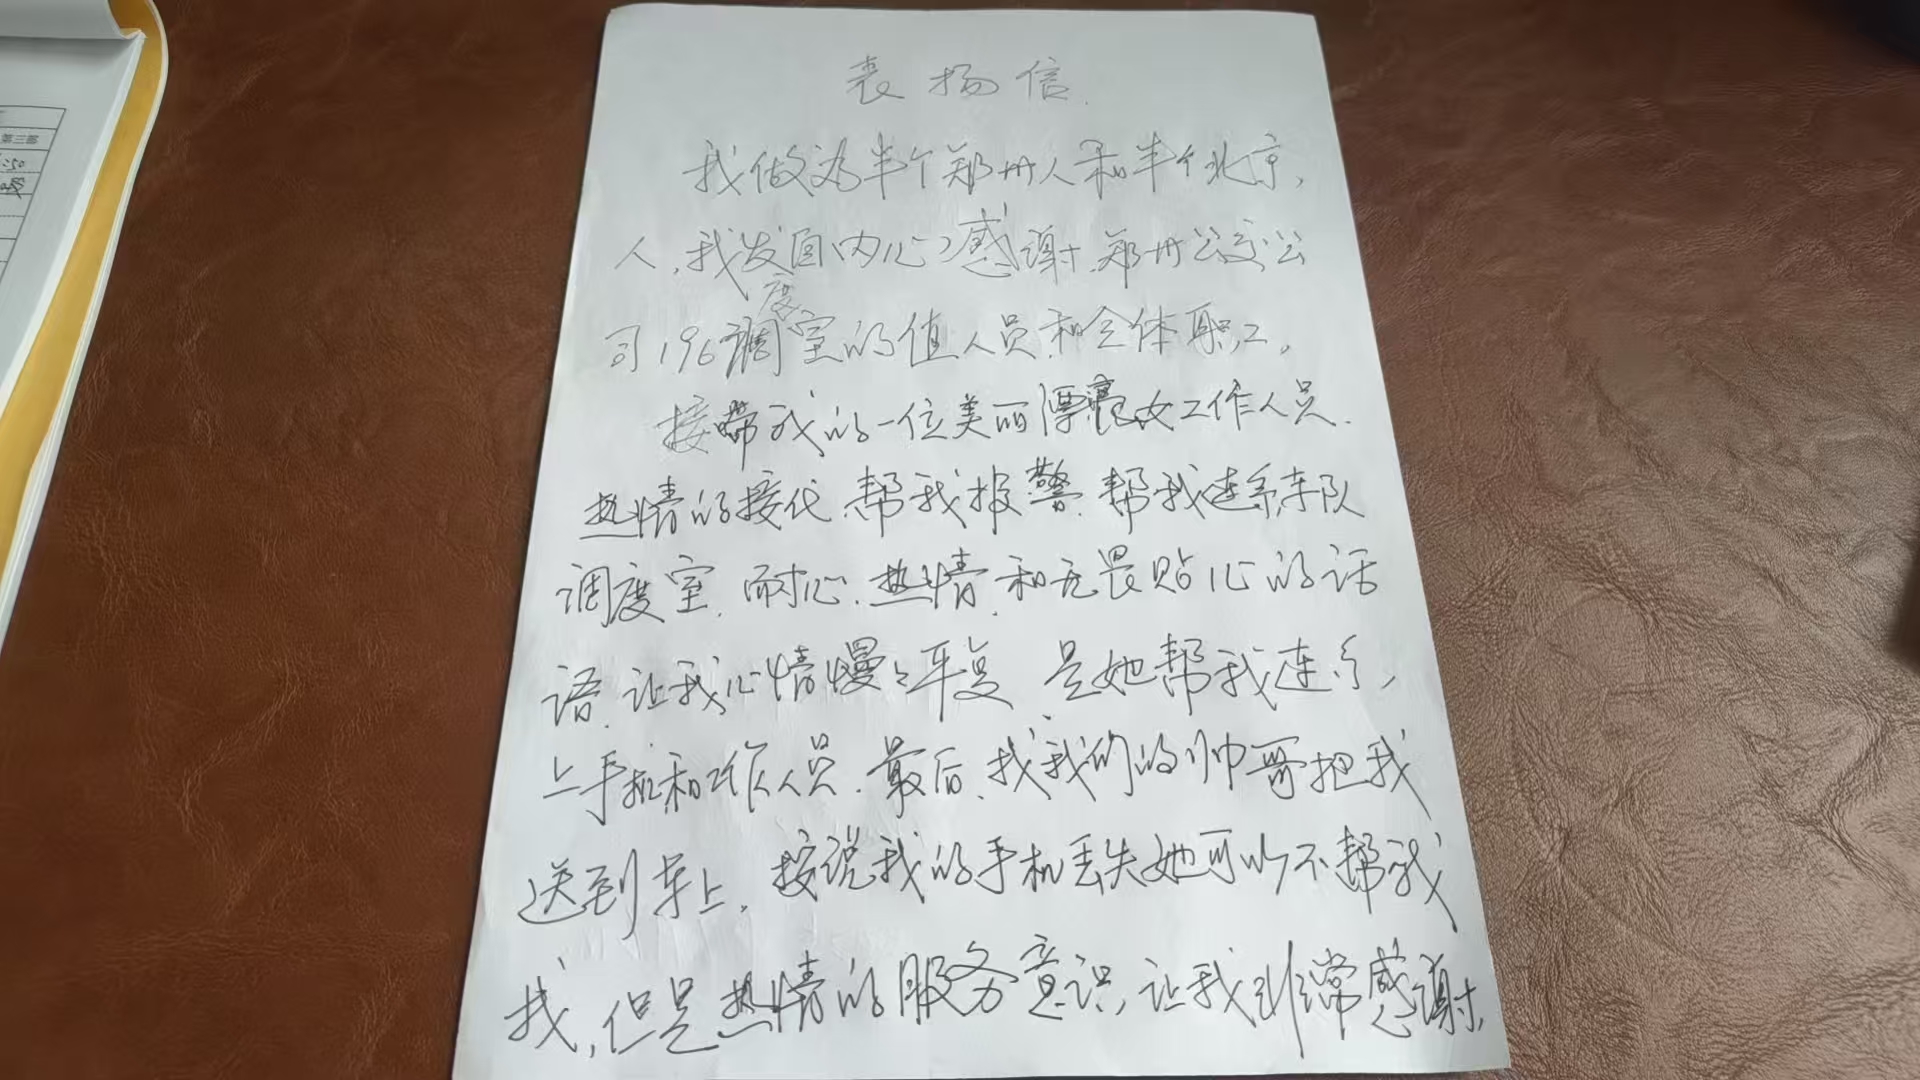 第三部
:50
表扬信.
我做为半个郑州人和半个北京,
人,我发自内心感谢,郑州公交公
司196调度室的值人员和全体职工,
接带我的一位美丽漂亮女工作人员.
热情的接代,帮我报警,帮我连系车队
调度室,耐心,热情,和无畏贴心的话
语,让我心情慢々平复 是她帮我连系,
上手机和工作人员.最后,找我们的帅哥把我
送到车上,按说我的手机丢失她可以不帮我
找,但是热情的服务意识,让我非常感谢,